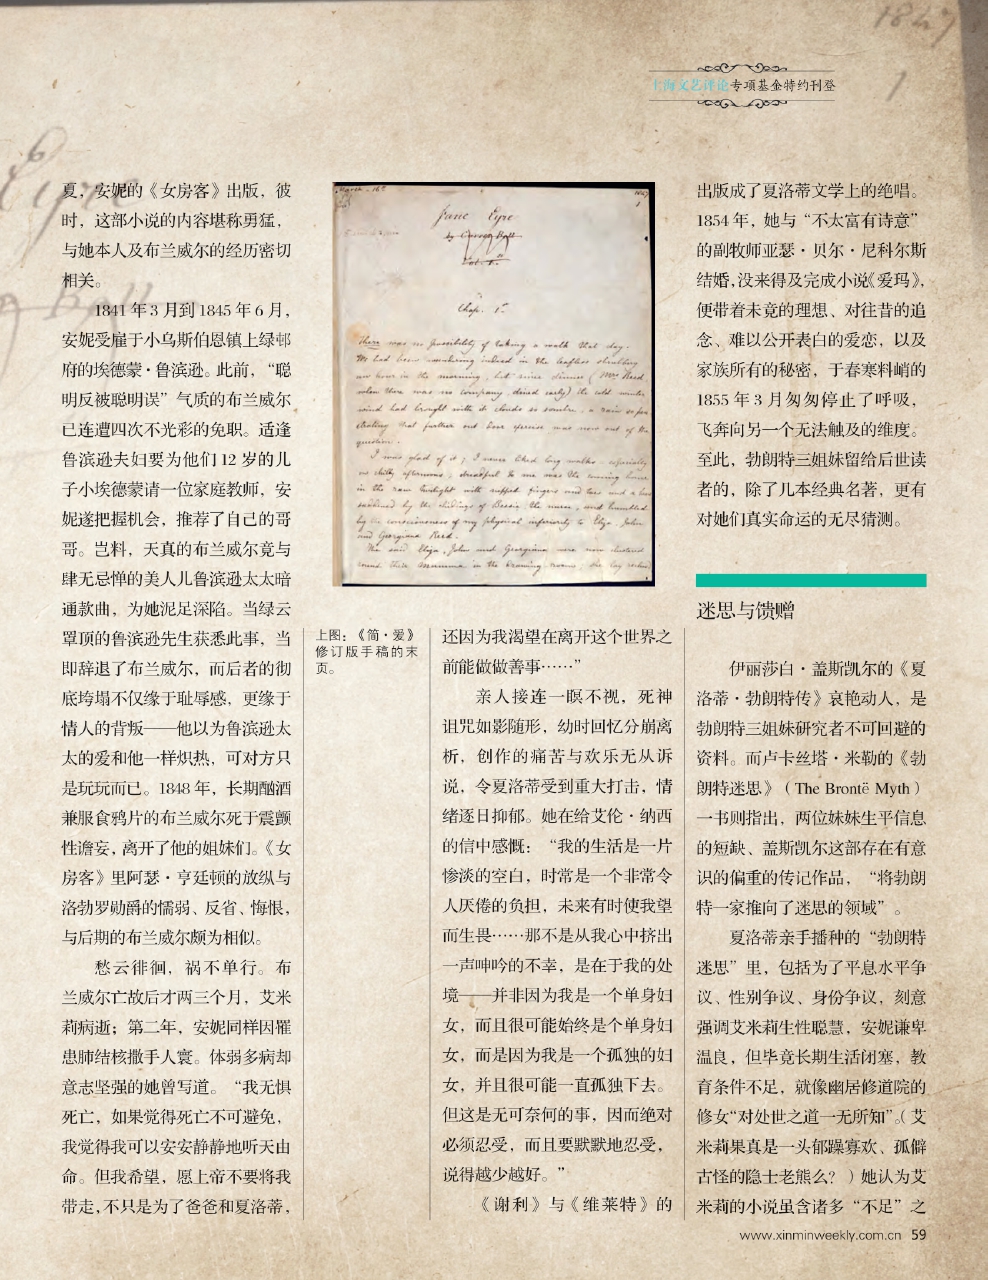 1847
1
上海文艺评论专项基金特约刊登
夏，安妮的《女房客》出版，彼
时，这部小说的内容堪称勇猛，
与她本人及布兰威尔的经历密切
相关。
1841 年 3 月到 1845 年 6 月，
安妮受雇于小乌斯伯恩镇上绿邨
府的埃德蒙·鲁滨逊。此前，“聪
明反被聪明误”气质的布兰威尔
已连遭四次不光彩的免职。适逢
鲁滨逊夫妇要为他们 12 岁的儿
子小埃德蒙请一位家庭教师，安
妮遂把握机会，推荐了自己的哥
哥。岂料，天真的布兰威尔竟与
肆无忌惮的美人儿鲁滨逊太太暗
通款曲，为她泥足深陷。当绿云
罩顶的鲁滨逊先生获悉此事，当
即辞退了布兰威尔，而后者的彻
底垮塌不仅缘于耻辱感，更缘于
情人的背叛——他以为鲁滨逊太
太的爱和他一样炽热，可对方只
是玩玩而已。1848 年，长期酗酒
兼服食鸦片的布兰威尔死于震颤
性谵妄，离开了他的姐妹们。《女
房客》里阿瑟·亨廷顿的放纵与
洛勃罗勋爵的懦弱、反省、悔恨，
与后期的布兰威尔颇为相似。
愁云徘徊，祸不单行。布
兰威尔亡故后才两三个月，艾米
莉病逝；第二年，安妮同样因罹
患肺结核撒手人寰。体弱多病却
意志坚强的她曾写道。“我无惧
死亡，如果觉得死亡不可避免，
我觉得我可以安安静静地听天由
命。但我希望，愿上帝不要将我
带走，不只是为了爸爸和夏洛蒂，
Jane Eyre
by Currer Bell
Vol. 1st
Chap. 1st
There was no possibility of taking a walk that day.
We had been wandering indeed in the leafless shrubbery
an hour in the morning, but since dinner (Mrs Reed,
when there was no company, dined early) the cold winter
wind had brought with it clouds so sombre, a rain so pene
trating that further out door exercise was now out of the
question.
I was glad of it; I never liked long walks - especially
on chilly afternoons; dreadful to me was the coming home
in the raw twilight with nipped fingers and toes and a heart
saddened by the chidings of Bessie, the nurse, and humbled
by the consciousness of my physical inferiority to Eliza, John
and Georgiana Reed.
The said Eliza, John and Georgiana were now clustered
round their Mamma in the drawing-room; she lay reclined
上图：《简·爱》
修订版手稿的末
页。
还因为我渴望在离开这个世界之
前能做做善事……”
亲人接连一瞑不视，死神
诅咒如影随形，幼时回忆分崩离
析，创作的痛苦与欢乐无从诉
说，令夏洛蒂受到重大打击，情
绪逐日抑郁。她在给艾伦·纳西
的信中感慨：“我的生活是一片
惨淡的空白，时常是一个非常令
人厌倦的负担，未来有时使我望
而生畏……那不是从我心中挤出
一声呻吟的不幸，是在于我的处
境——并非因为我是一个单身妇
女，而且很可能始终是个单身妇
女，而是因为我是一个孤独的妇
女，并且很可能一直孤独下去。
但这是无可奈何的事，因而绝对
必须忍受，而且要默默地忍受，
说得越少越好。”
《谢利》与《维莱特》的
出版成了夏洛蒂文学上的绝唱。
1854 年，她与“不太富有诗意”
的副牧师亚瑟·贝尔·尼科尔斯
结婚，没来得及完成小说《爱玛》，
便带着未竟的理想、对往昔的追
念、难以公开表白的爱恋，以及
家族所有的秘密，于春寒料峭的
1855 年 3 月匆匆停止了呼吸，
飞奔向另一个无法触及的维度。
至此，勃朗特三姐妹留给后世读
者的，除了几本经典名著，更有
对她们真实命运的无尽猜测。
迷思与馈赠
伊丽莎白·盖斯凯尔的《夏
洛蒂·勃朗特传》哀艳动人，是
勃朗特三姐妹研究者不可回避的
资料。而卢卡丝塔·米勒的《勃
朗特迷思》（The Brontë Myth）
一书则指出，两位妹妹生平信息
的短缺、盖斯凯尔这部存在有意
识的偏重的传记作品，“将勃朗
特一家推向了迷思的领域”。
夏洛蒂亲手播种的“勃朗特
迷思”里，包括为了平息水平争
议、性别争议、身份争议，刻意
强调艾米莉生性聪慧，安妮谦卑
温良，但毕竟长期生活闭塞，教
育条件不足，就像幽居修道院的
修女“对处世之道一无所知”。（艾
米莉果真是一头郁躁寡欢、孤僻
古怪的隐士老熊么？）她认为艾
米莉的小说虽含诸多“不足”之
www.xinminweekly.com.cn 59